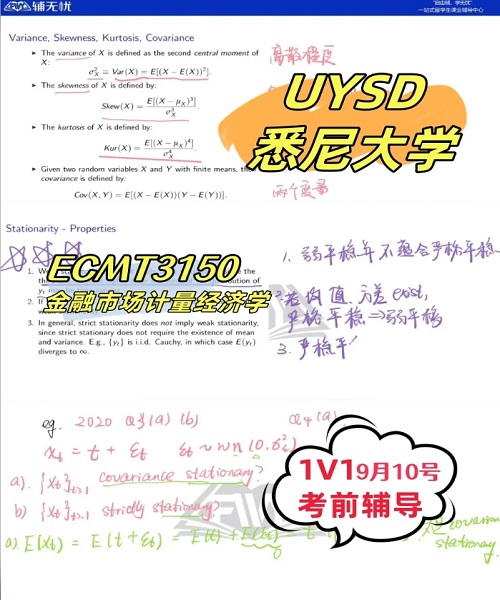 辅无忧
一站式留学生课业辅导中心
Variance, Skewness, Kurtosis, Covariance
The variance of X is defined as the second central moment of
X:
σ²_X ≡ Var(X) = E[(X − E(X))²].
离散程度
The skewness of X is defined by:
Skew(X) = E[(X − μ_X)³] / σ³_X
UYSD
The kurtosis of X is defined by:
悉尼大学
Kur(X) = E[(X − μ_X)⁴] / σ⁴_X
Given two random variables X and Y with finite means, the
covariance is defined by:
Cov(X, Y) = E[(X − E(X))(Y − E(Y))].
两个变量
Stationarity - Properties
1. 弱平稳并不包含严格平稳
1. W
the
ECMT3150
th
tion of
y
金融市场计量经济学
若均值、方差 exist,
2. If
严格平稳 ⇒ 弱平稳
w
3. In general, strict stationarity does not imply weak stationarity,
since strict stationarity does not require the existence of mean
and variance. E.g., {y_t} is i.i.d. Cauchy, in which case E(y_t)
diverges to ∞.
3. 严格平
eg. 2020 Q4 (a) (b)
Q4 (a)
x_t = t + ε_t ε_t ~ wn (0, σ²_ε)
1V1 9月10号
考前辅导
a). {x_t}_{t≥1} covariance stationary?
b) {x_t}_{t≥1} strictly stationary?
a) E(x_t) = E(t + ε_t) = E(t) + E(ε_t) = t
covarian
stationary.